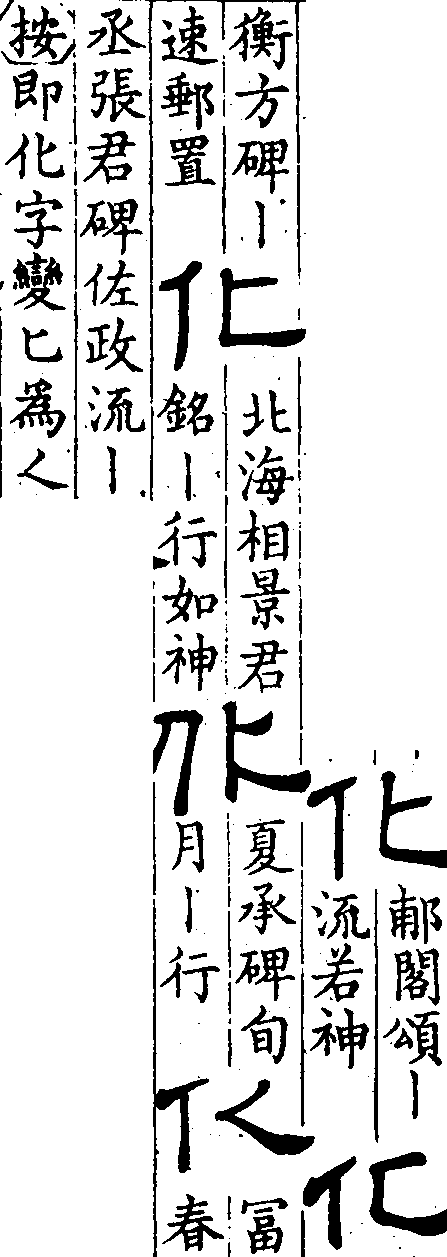 化
郙閣頌丨
流若神
化
衡方碑丨
速郵置
化
北海相景君
銘丨行如神
化
夏承碑旬
月丨行
㐺
冨
春
丞張君碑佐政流丨
按即化字變匕爲人